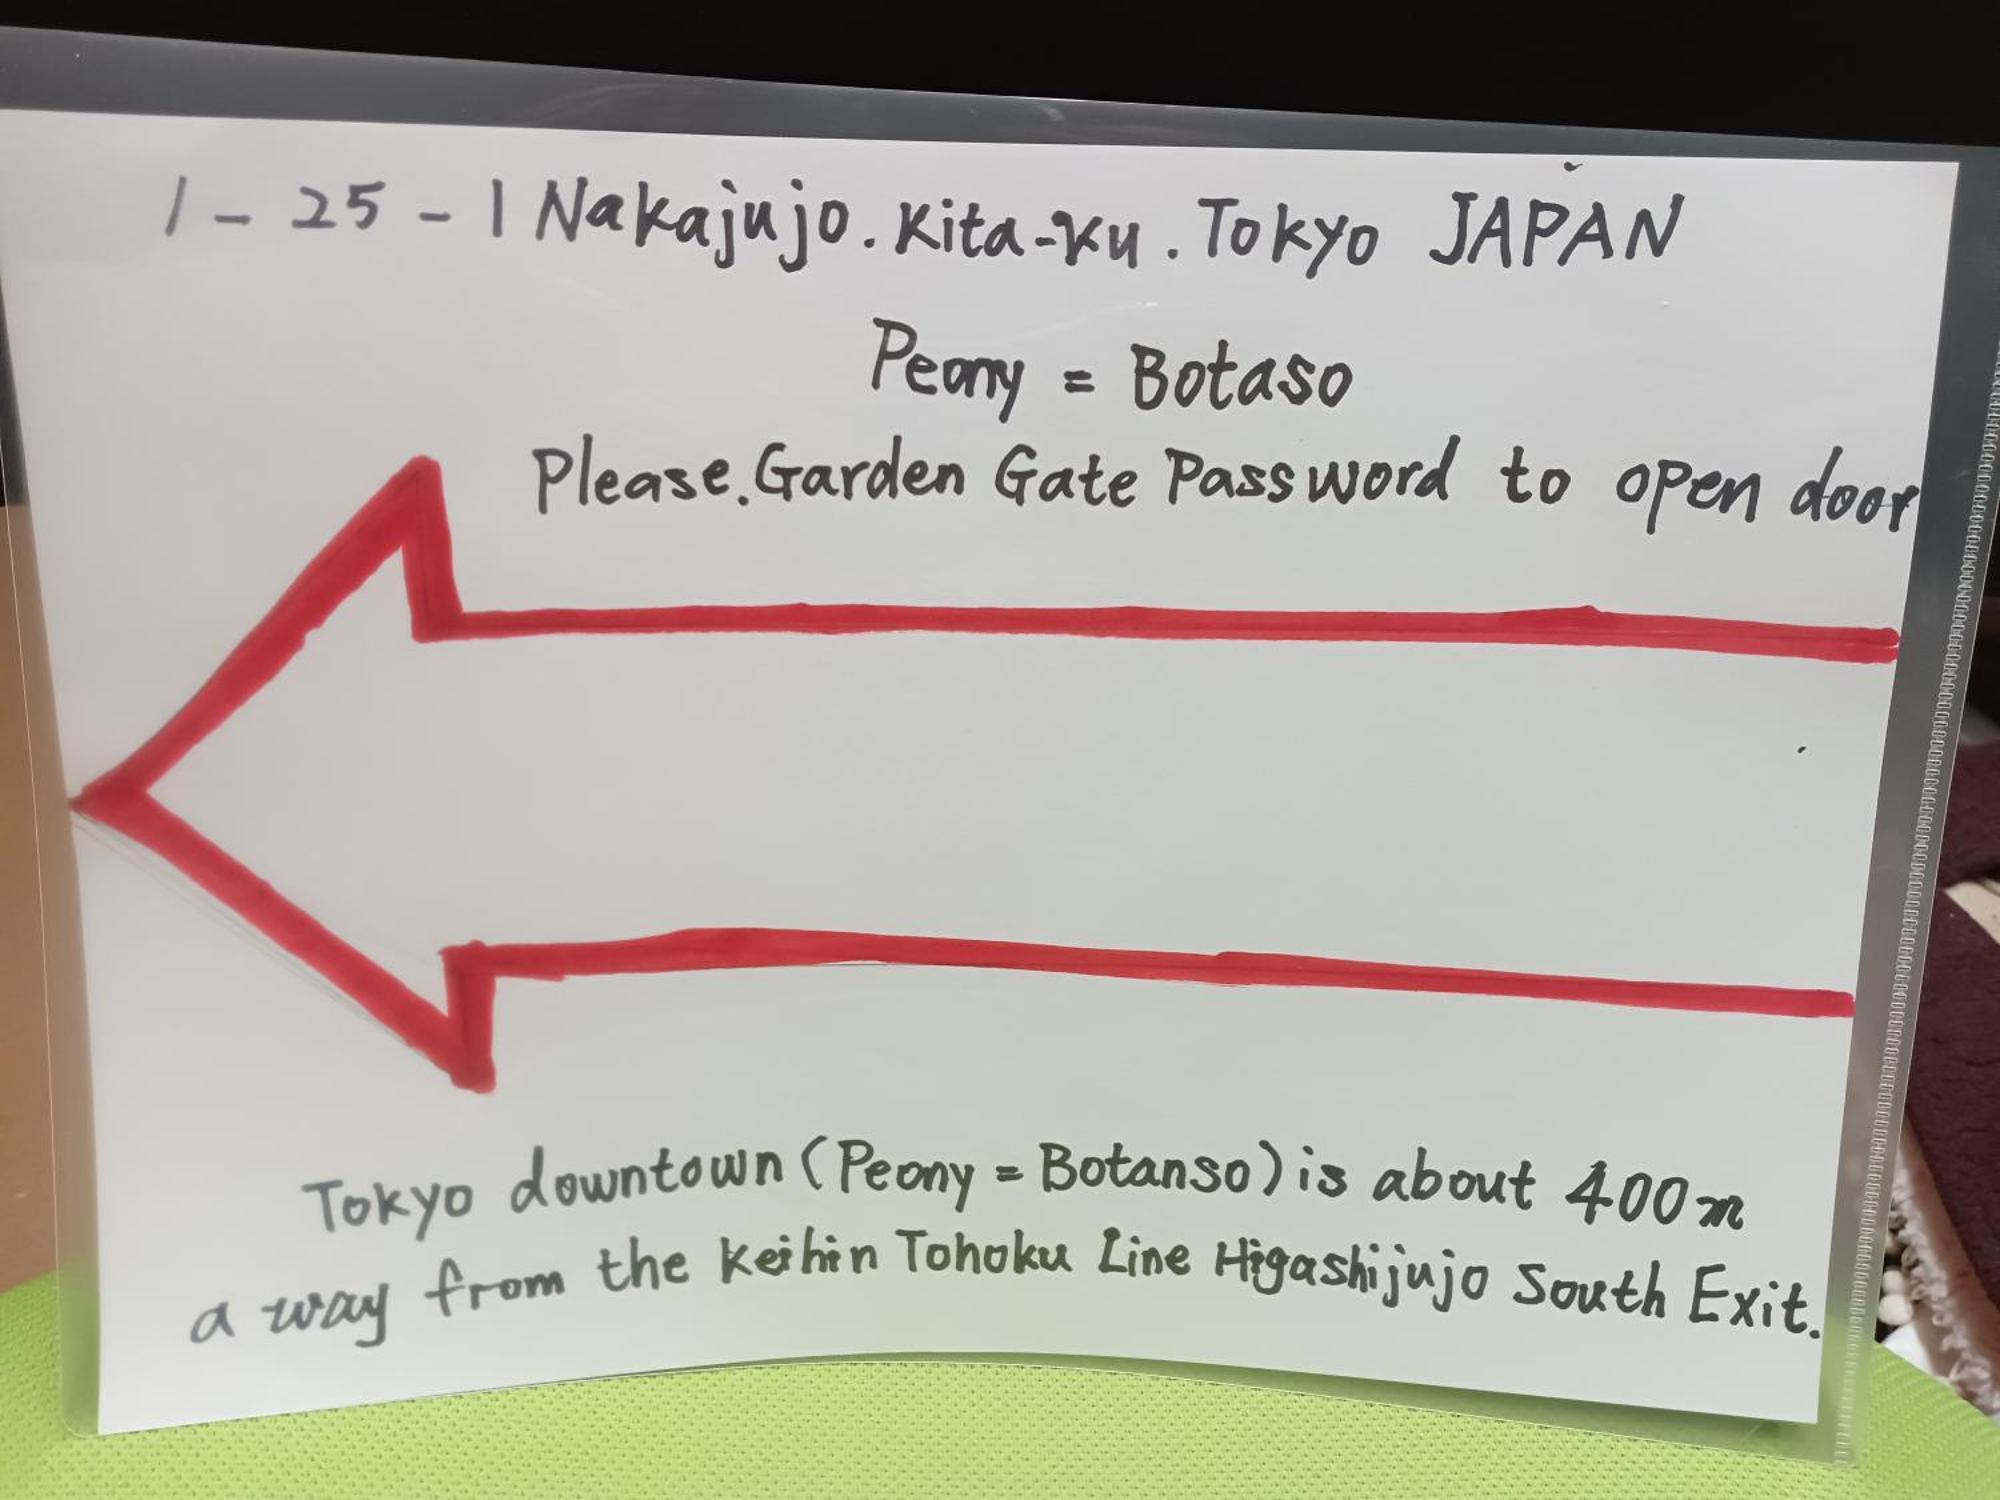 1-25-1 Nakajujo.Kita-Ku.Tokyo JAPAN
Peony = Botaso
Please.Garden Gate Password to open door
Tokyo downtown (Peony = Botanso) is about 400m
a way from the Keihin Tohoku Line Higashijujo South Exit.